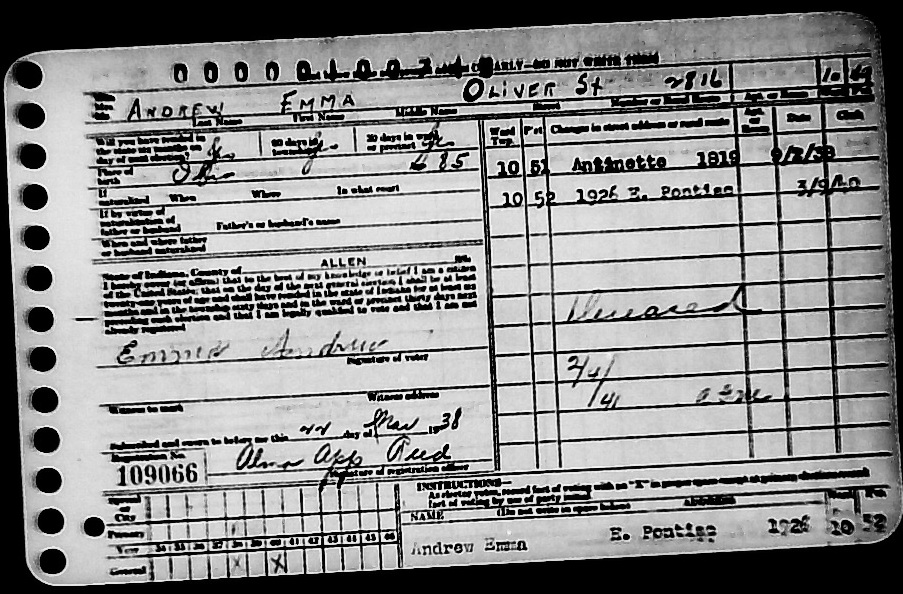 ANDREW EMMA OLIVER St 2816 10
Last Name First Name Middle Name Street Number or Rural Route Apt. or Room Ward Pct.
Will you have resided in the state six months on day of next election?
60 days in township
30 days in ward or precinct
Place of birth
If naturalized When Where In what court
If by virtue of naturalization of father or husband Father's or husband's name
When and where father or husband naturalized
Ward Twp. Pct. Changes in street address or rural route Apt. or Room Date Clerk
10 51 Antinette 1819
10 52 1926 E. Pontiac 3/9/40
Deceased
2/4/41
State of Indiana, County of ALLEN
I hereby swear (or affirm) that to the best of my knowledge or belief I am a citizen
of the United States; that on the day of the next general election I shall be at least
twenty-one years of age and shall have resided in the state of Indiana for at least six
months and in the township sixty days and in the ward or precinct thirty days next
before such election and that I am legally qualified to vote and that I am not
already registered
Emma Andrew
Signature of voter
Witness to mark Witness address
Subscribed and sworn to before me this 22 day of Mar 1938
Registration No.
109066
Alma App Reed
Signature of registration officer
Special or City
Primary
Year 34 35 36 37 38 39 40 41 42 43 44 45 46
General X X
INSTRUCTIONS—
As elector votes, record fact of voting with an "X" in proper space except at primary elections record
fact of voting by use of party initial
NAME (Do not write in space below) ADDRESS Ward Pct.
Andrew Emma E. Pontiac 1926 10 52